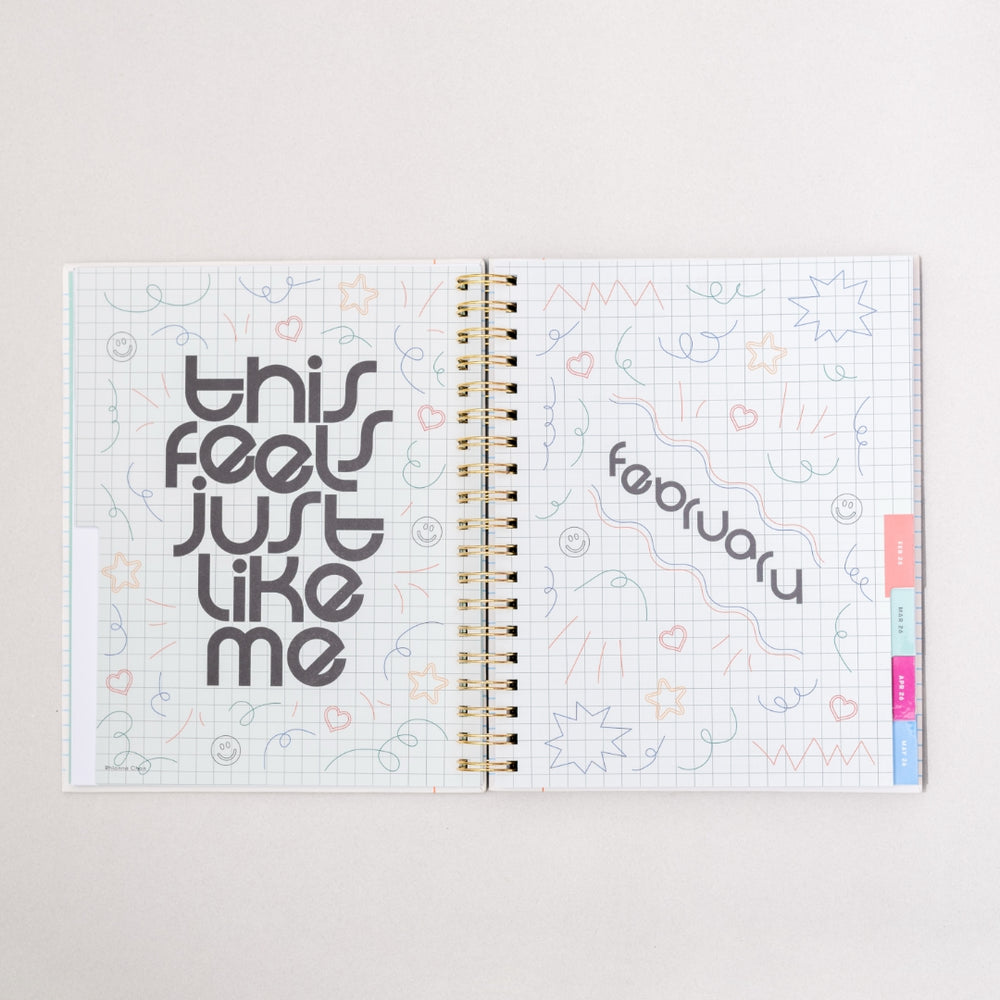 this
feels
just
like
me
february
FEB 26
MAR 26
APR 26
MAY 26